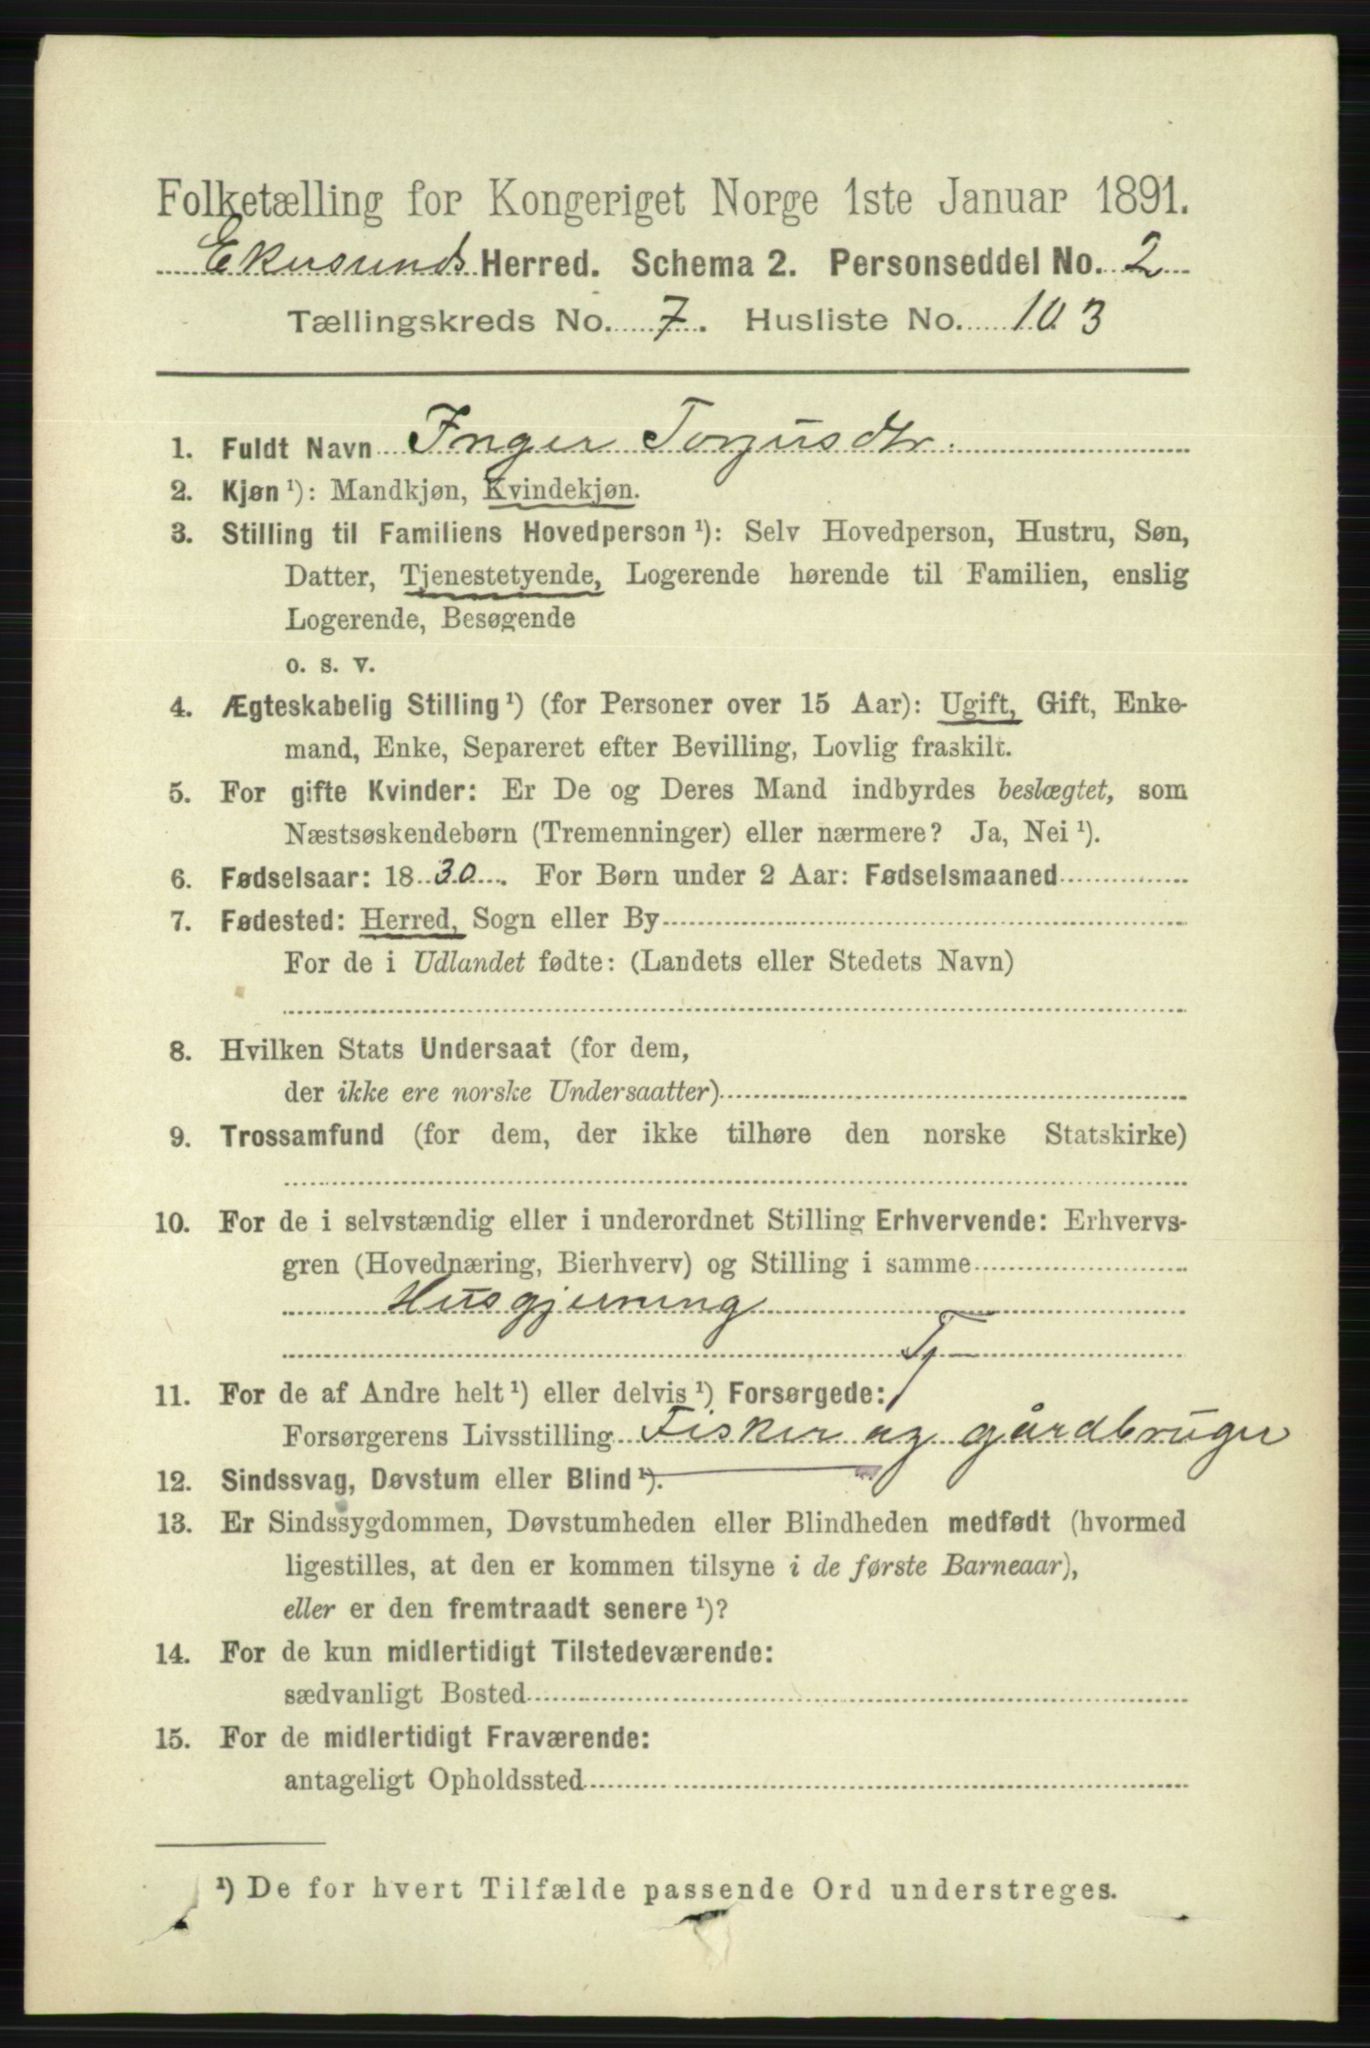 Folketælling for Kongeriget Norge 1ste Januar 1891.
Ekersunds Herred. Schema 2. Personseddel No. 2
Tællingskreds No. 7. Husliste No. 103
1. Fuldt Navn Inger Torjusdtr.
2. Kjøn ¹): Mandkjøn, Kvindekjøn.
3. Stilling til Familiens Hovedperson ¹): Selv Hovedperson, Hustru, Søn,
Datter, Tjenestetyende, Logerende hørende til Familien, enslig
Logerende, Besøgende
o. s. v.
4. Ægteskabelig Stilling ¹) (for Personer over 15 Aar): Ugift, Gift, Enke-
mand, Enke, Separeret efter Bevilling, Lovlig fraskilt.
5. For gifte Kvinder: Er De og Deres Mand indbyrdes beslægtet, som
Næstsøskendebørn (Tremenninger) eller nærmere? Ja, Nei ¹).
6. Fødselsaar: 1830. For Børn under 2 Aar: Fødselsmaaned
7. Fødested: Herred, Sogn eller By
For de i Udlandet fødte: (Landets eller Stedets Navn)
8. Hvilken Stats Undersaat (for dem,
der ikke ere norske Undersaatter)
9. Trossamfund (for dem, der ikke tilhøre den norske Statskirke)
10. For de i selvstændig eller i underordnet Stilling Erhvervende: Erhvervs-
gren (Hovednæring, Bierhverv) og Stilling i samme
Husgjerning
Tj
11. For de af Andre helt ¹) eller delvis ¹) Forsørgede:
Forsørgerens Livsstilling Fisker og gårdbruger
12. Sindssvag, Døvstum eller Blind ¹).
13. Er Sindssygdommen, Døvstumheden eller Blindheden medfødt (hvormed
ligestilles, at den er kommen tilsyne i de første Barneaar),
eller er den fremtraadt senere ¹)?
14. For de kun midlertidigt Tilstedeværende:
sædvanligt Bosted
15. For de midlertidigt Fraværende:
antageligt Opholdssted
¹) De for hvert Tilfælde passende Ord understreges.